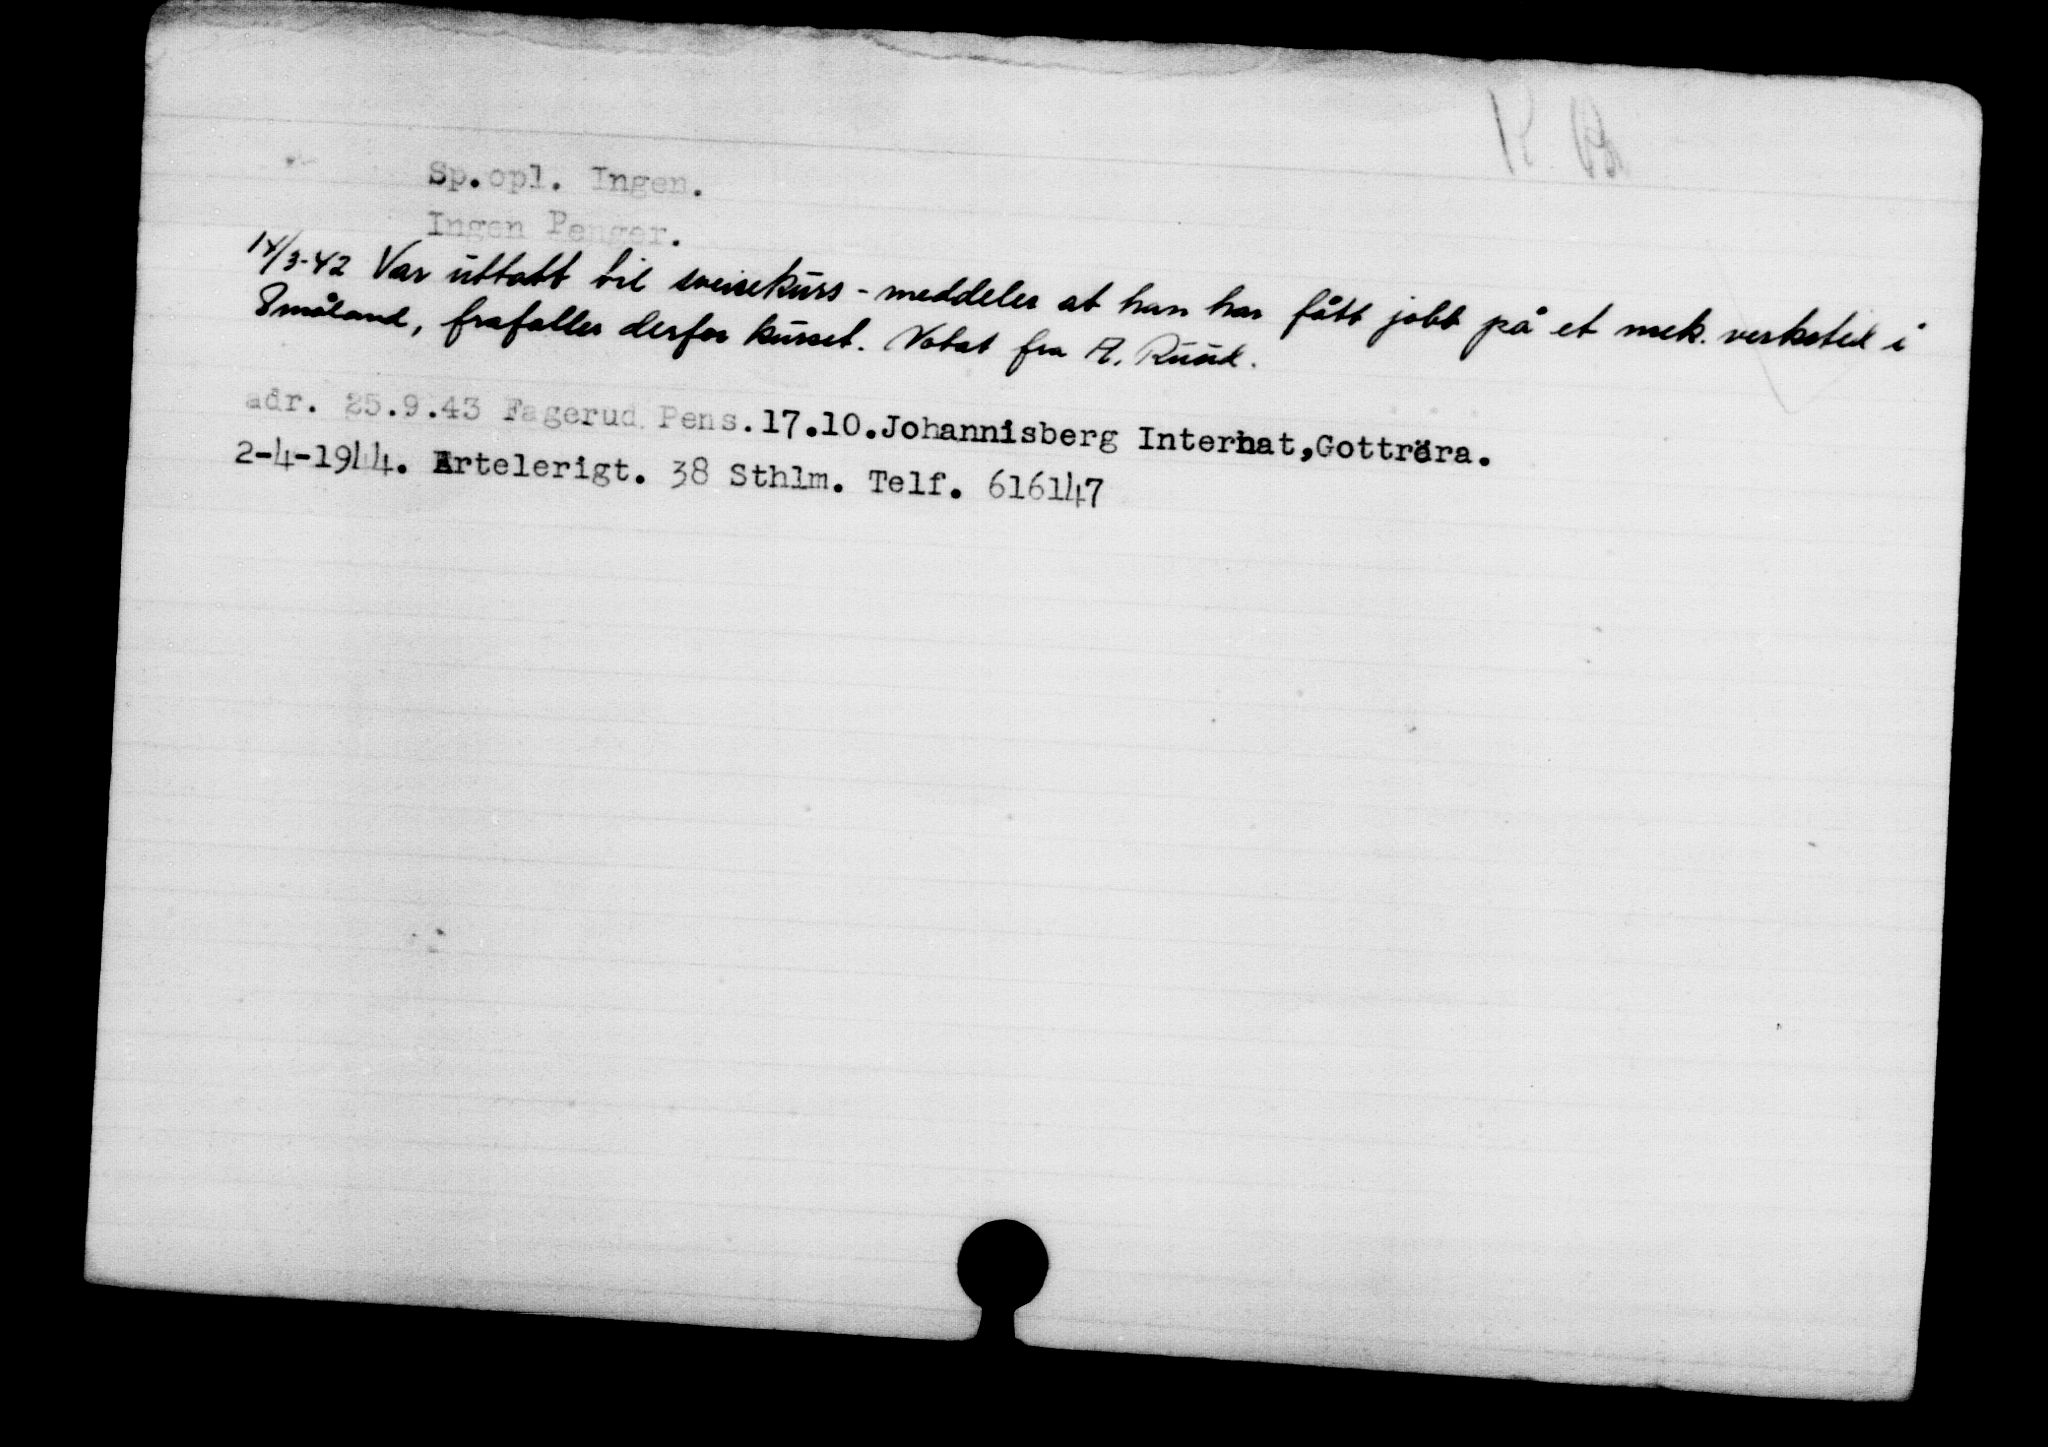 Sp.opl. Ingen.
Ingen Penger.
14/3-42 Var uttatt til sveisekurs - meddeler at han har fått jobb på et mek. verksted i
Småland, frafaller derfor kurset. Notat fra A. Ruud.
adr. 25.9.43 Fagerud Pens.17.10.Johannisberg Internat,Gottröra.
2-4-1944. Artelerigt. 38 Sthlm. Telf. 616147